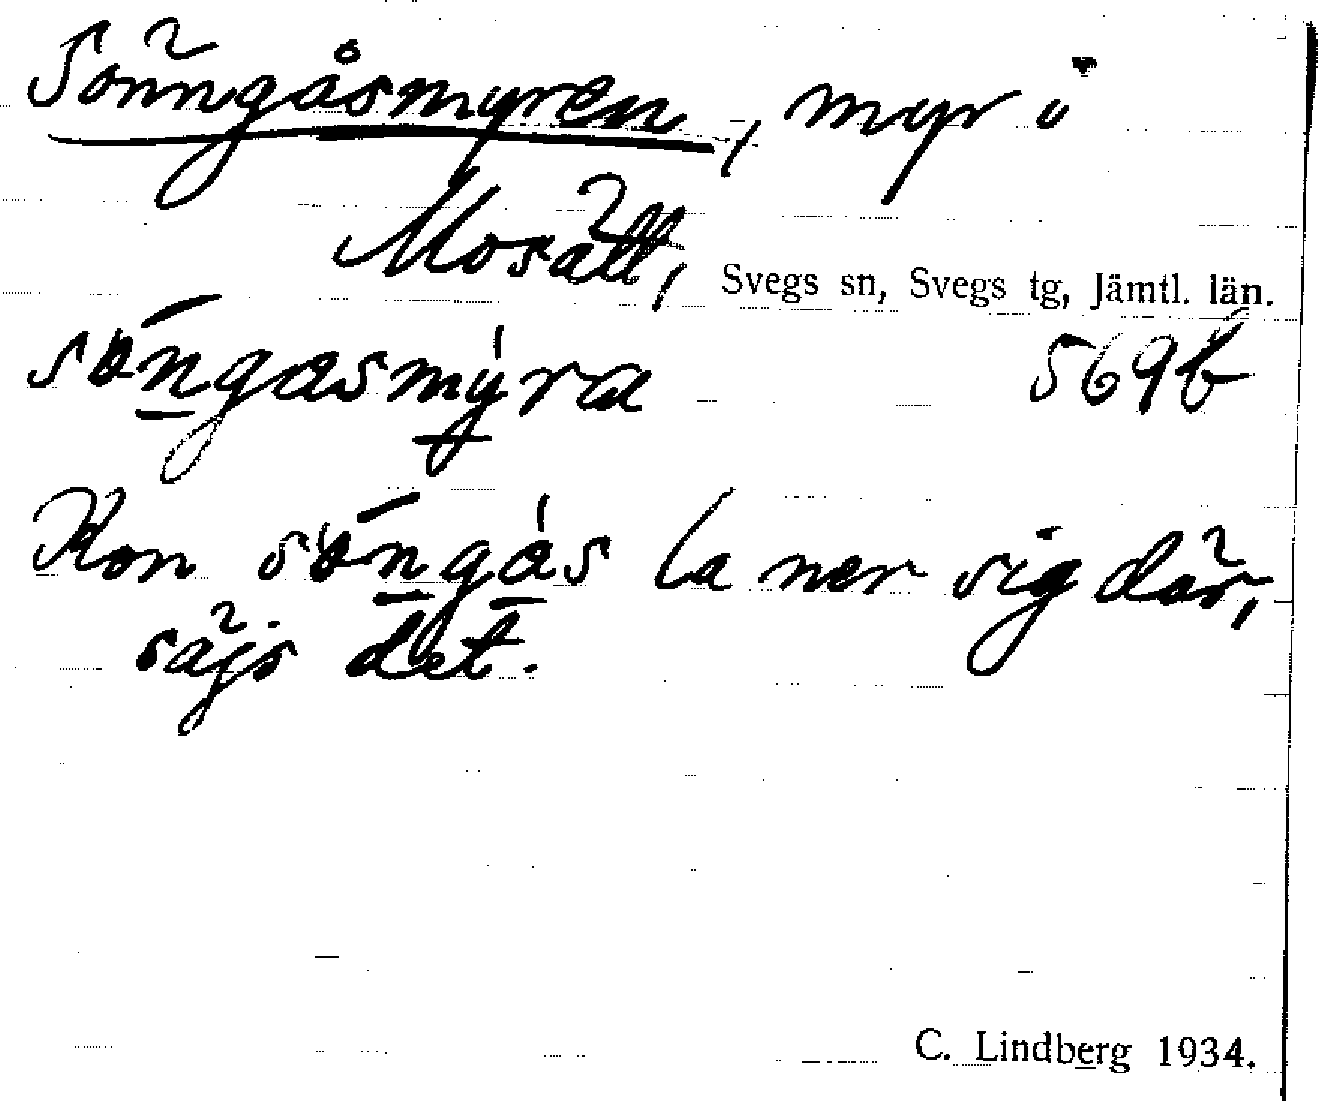 Sönngåsmyren, myr i
Mosätt, Svegs sn, Svegs tg, Jämtl. län.
söngasmyra 569b
Kon söngås la ner sig där,
säjs det.
C. Lindberg 1934.